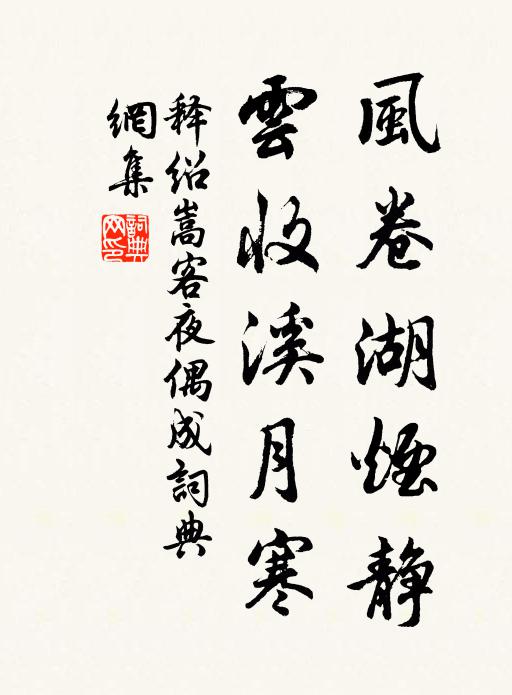 風卷湖煙静
雲收溪月寒
释绍嵩客夜偶成詞典
網集
詞典網印